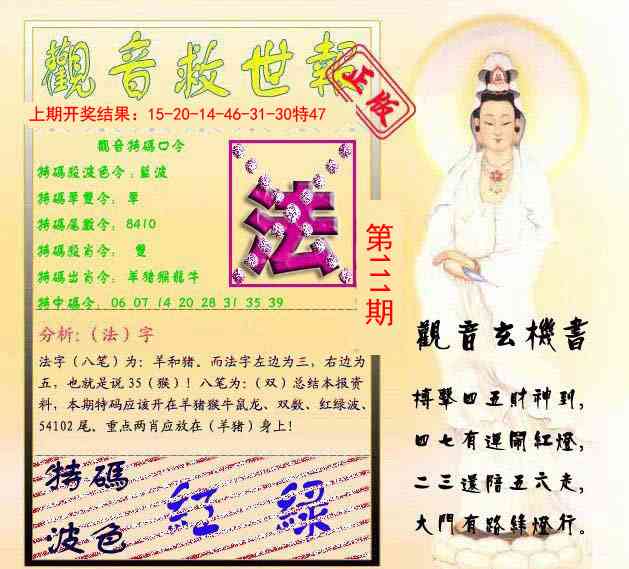 觀音救世報
正版
上期开奖结果：15-20-14-46-31-30特47
觀音特碼口令
特碼段波色令：藍波
特碼單雙令：單
特碼尾數令：8410
特碼段肖令：雙
特碼出肖令：羊豬猴龍牛
特中碼令：06 07 14 20 28 31 35 39
法
第111期
分析:（法）字
法字（八笔）为：羊和猪。而法字左边为三，右边为
五，也就是说 35（猴）！八笔为：（双）总结本报资
料，本期特码应该开在羊猪猴牛鼠龙、双数、红绿波、
54102 尾、重点两肖应放在（羊猪）身上！
特碼
波色
紅 綠
觀音玄機書
搏擊四五財神到,
四七有運鬧紅燈,
二三還陪五六走,
大門有路綠燈行。